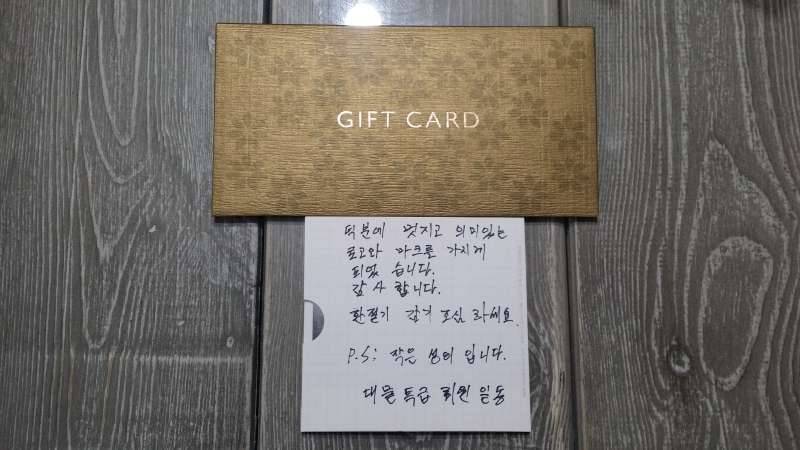 GIFT CARD
덕분에 멋지고 의미있는
로고와 마크를 가지게
되었습니다.
감사합니다.
환절기 감기 조심 하세요.
P.S: 작은 성의 입니다.
대물특급 회원 일동